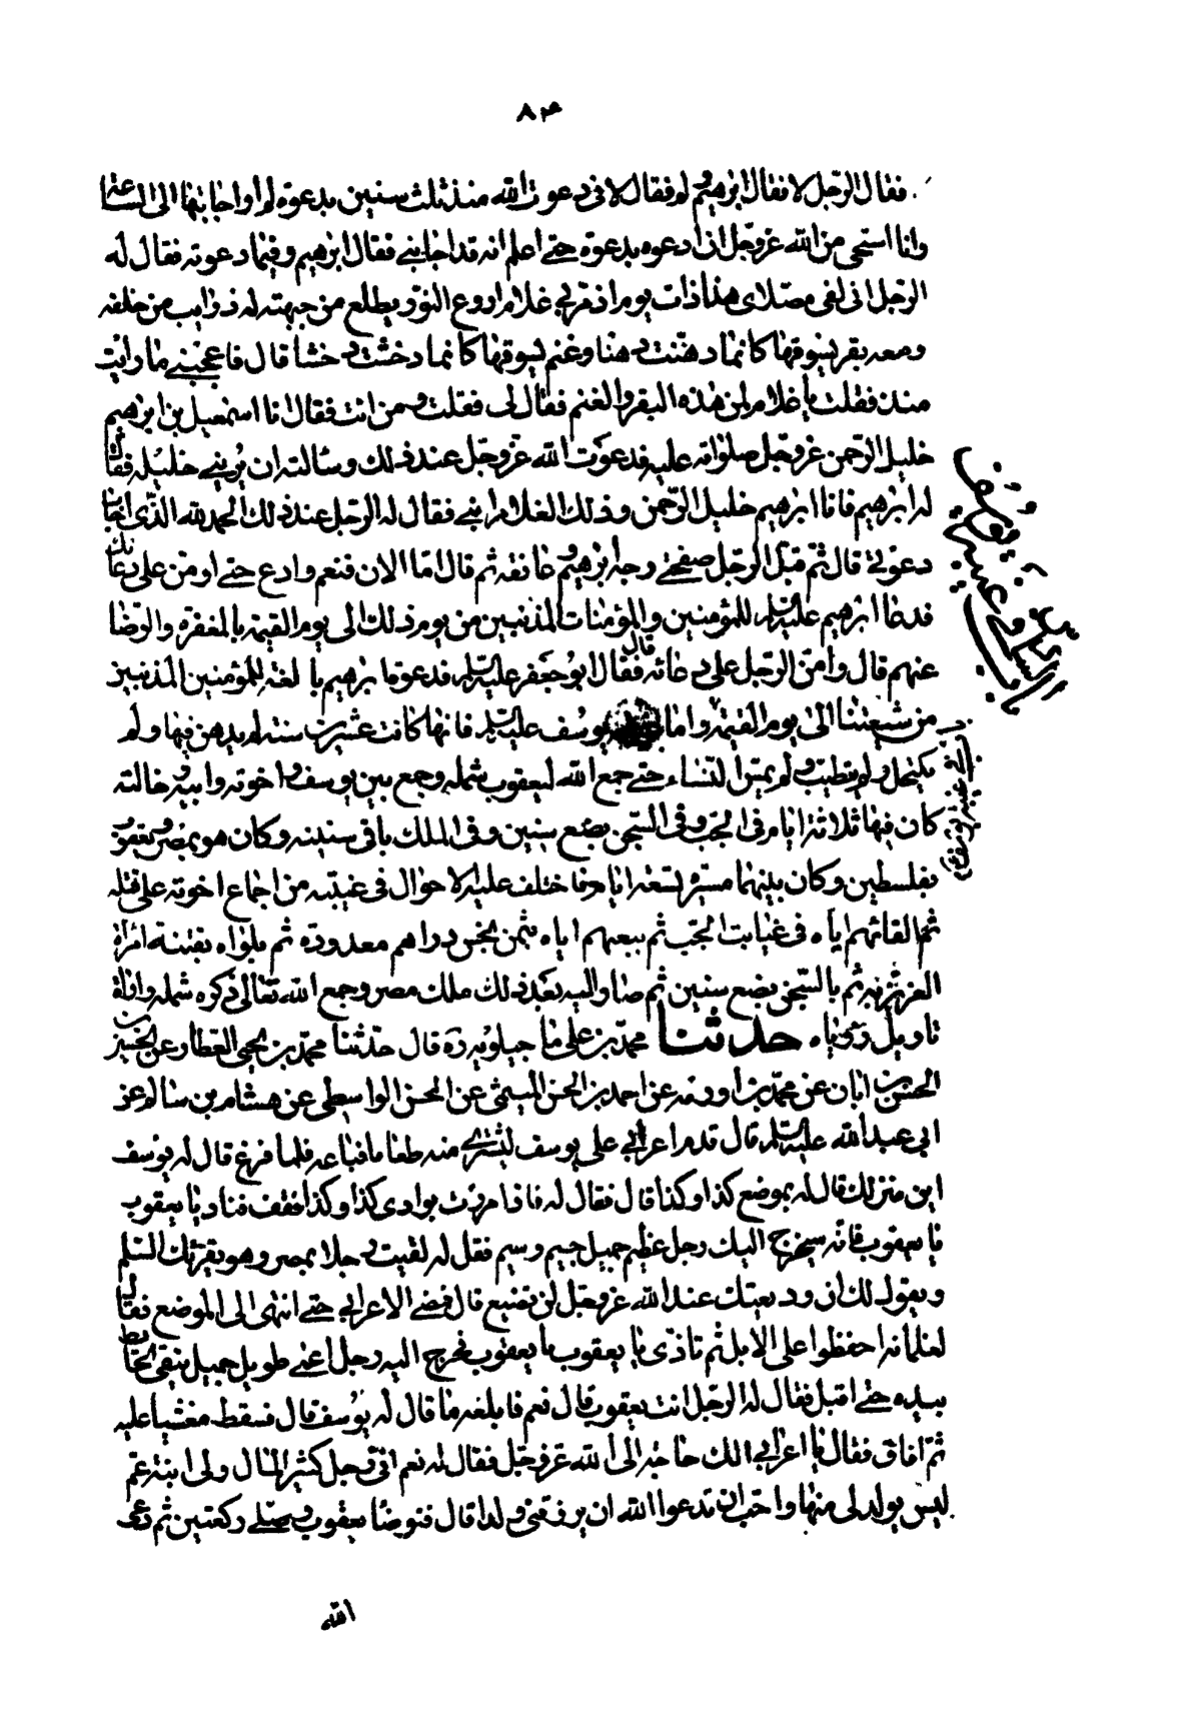 ٨٣
فقال الرجل لا فقال ابرهيم و لم فقال لانى دعوت الله منذ ثلث سنين بدعوة لم ار اجابتها الى الساعة
وانا استحى من الله عزوجل ان ادعوه بدعوة حتى اعلم انه قد اجابنى فقال ابرهيم وفيما دعوته فقال له
الرجل انى لفى مصلاى هذا ذات يوم اذ مر بى غلام اروع النور يطلع من جبهته له ذوايب من خلفه
ومعه بقر يسوقها كانما دهنت دهنا وغنم يسوقها كانما دخشت دخشا قال فاعجبنى ما رايت
منه فقلت يا غلام لمن هذه البقر والغنم فقال لى فقلت ومن انت فقال انا اسمعيل بن ابرهيم
خليل الرحمن عزوجل صلواته عليه فدعوت الله عزوجل عند ذلك وسالته ان يرينى خليله فقال
له ابرهيم فانا ابرهيم خليل الرحمن وذلك الغلام ابنى فقال له الرجل عند ذلك الحمد لله الذى اجاب
دعوتى قال ثم قبل الرجل صفحتى وجه ابرهيم و عانقه ثم قال اما الان فنعم وادع حتى اومن على دعائك
فدعا ابرهيم عليه السلام للمؤمنين والمؤمنات المذنبين من يوم ذلك الى يوم القيمة بالمغفرة والرضا
عنهم قال وامن الرجل على دعائه قال فقال ابو جعفر عليه السلام فدعوة ابرهيم بالغة للمؤمنين المذنبين
من شيعتنا الى يوم القيمة واما يوسف عليه السلام فانها كانت عشرين سنة لم يدهن فيها ولم
يكتحل ولم يتطيب ولم يمس النساء حتى جمع الله ليعقوب شمله وجمع بين يوسف واخوته وابيه وخالته
كان فيها ثلاثة ايام فى الجب وفى السجن بضع سنين وفى الملك باقى سنينه وكان هو بمصر ويعقوب
بفلسطين وكان بينهما مسيرة تسعة ايام فاختلف عليه الاحوال فى غيبته من اجماع اخوته على قتله
ثم القائهم اياه فى غيابت الجب ثم بيعهم اياه بثمن بخس دراهم معدودة ثم بلواه بفتنة امراة
العزيز ثم بالسجن بضع سنين ثم صار اليه بعد ذلك ملك مصر وجمع الله تعالى ذكره شمله واراه
تاويل رؤياه حدثنا محمد بن على ماجيلويه ره قال حدثنا محمد بن يحيى العطار عن الحسين بن
الحسن بن ابان عن محمد بن اورمه عن احمد بن الحسن الميثمى عن الحسن الواسطى عن هشام بن سالم عن
ابى عبد الله عليه السلام قال قدم اعرابى على يوسف ليشترى منه طعاما فباعه فلما فرغ قال له يوسف
اين منزلك قال له بموضع كذا وكذا قال فقال له فاذا مررت بوادى كذا وكذا فقف فناد يا يعقوب
يا يعقوب فانه سيخرج اليك رجل عظيم جميل جسيم وسيم فقل له لقيت رجلا بمصر وهو يقرئك السلم
ويقول لك ان وديعتك عند الله عزوجل لن تضيع قال فمضى الاعرابى حتى انتهى الى الموضع فقال
لغلمانه احفظوا على الابل ثم نادى يا يعقوب يا يعقوب فخرج اليه رجل اعمى طويل جميل يتقى الحائط
بيده حتى اقبل فقال له الرجل انت يعقوب قال نعم فابلغه ما قال له يوسف قال فسقط مغشيا عليه
ثم افاق فقال يا اعرابى الك حاجة الى الله عزوجل فقال له نعم انى رجل كثير المال ولى ابنة عم
ليس يولد لى منها واحب ان تدعوا الله ان يرزقنى ولدا قال فتوضا يعقوب وصلى ركعتين ثم دعى
الله